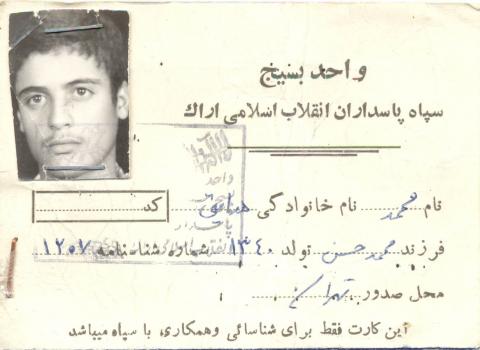 واحد بسیج
سپاه پاسداران انقلاب اسلامی اراک
نام محمد نام خانوادگی کد
فرزند محمدحسن تولد ۱۳۴۰ شماره شناسنامه ۱۲۰۷
محل صدور تهران
این کارت فقط برای شناسائی وهمکاری، با سپاه میباشد